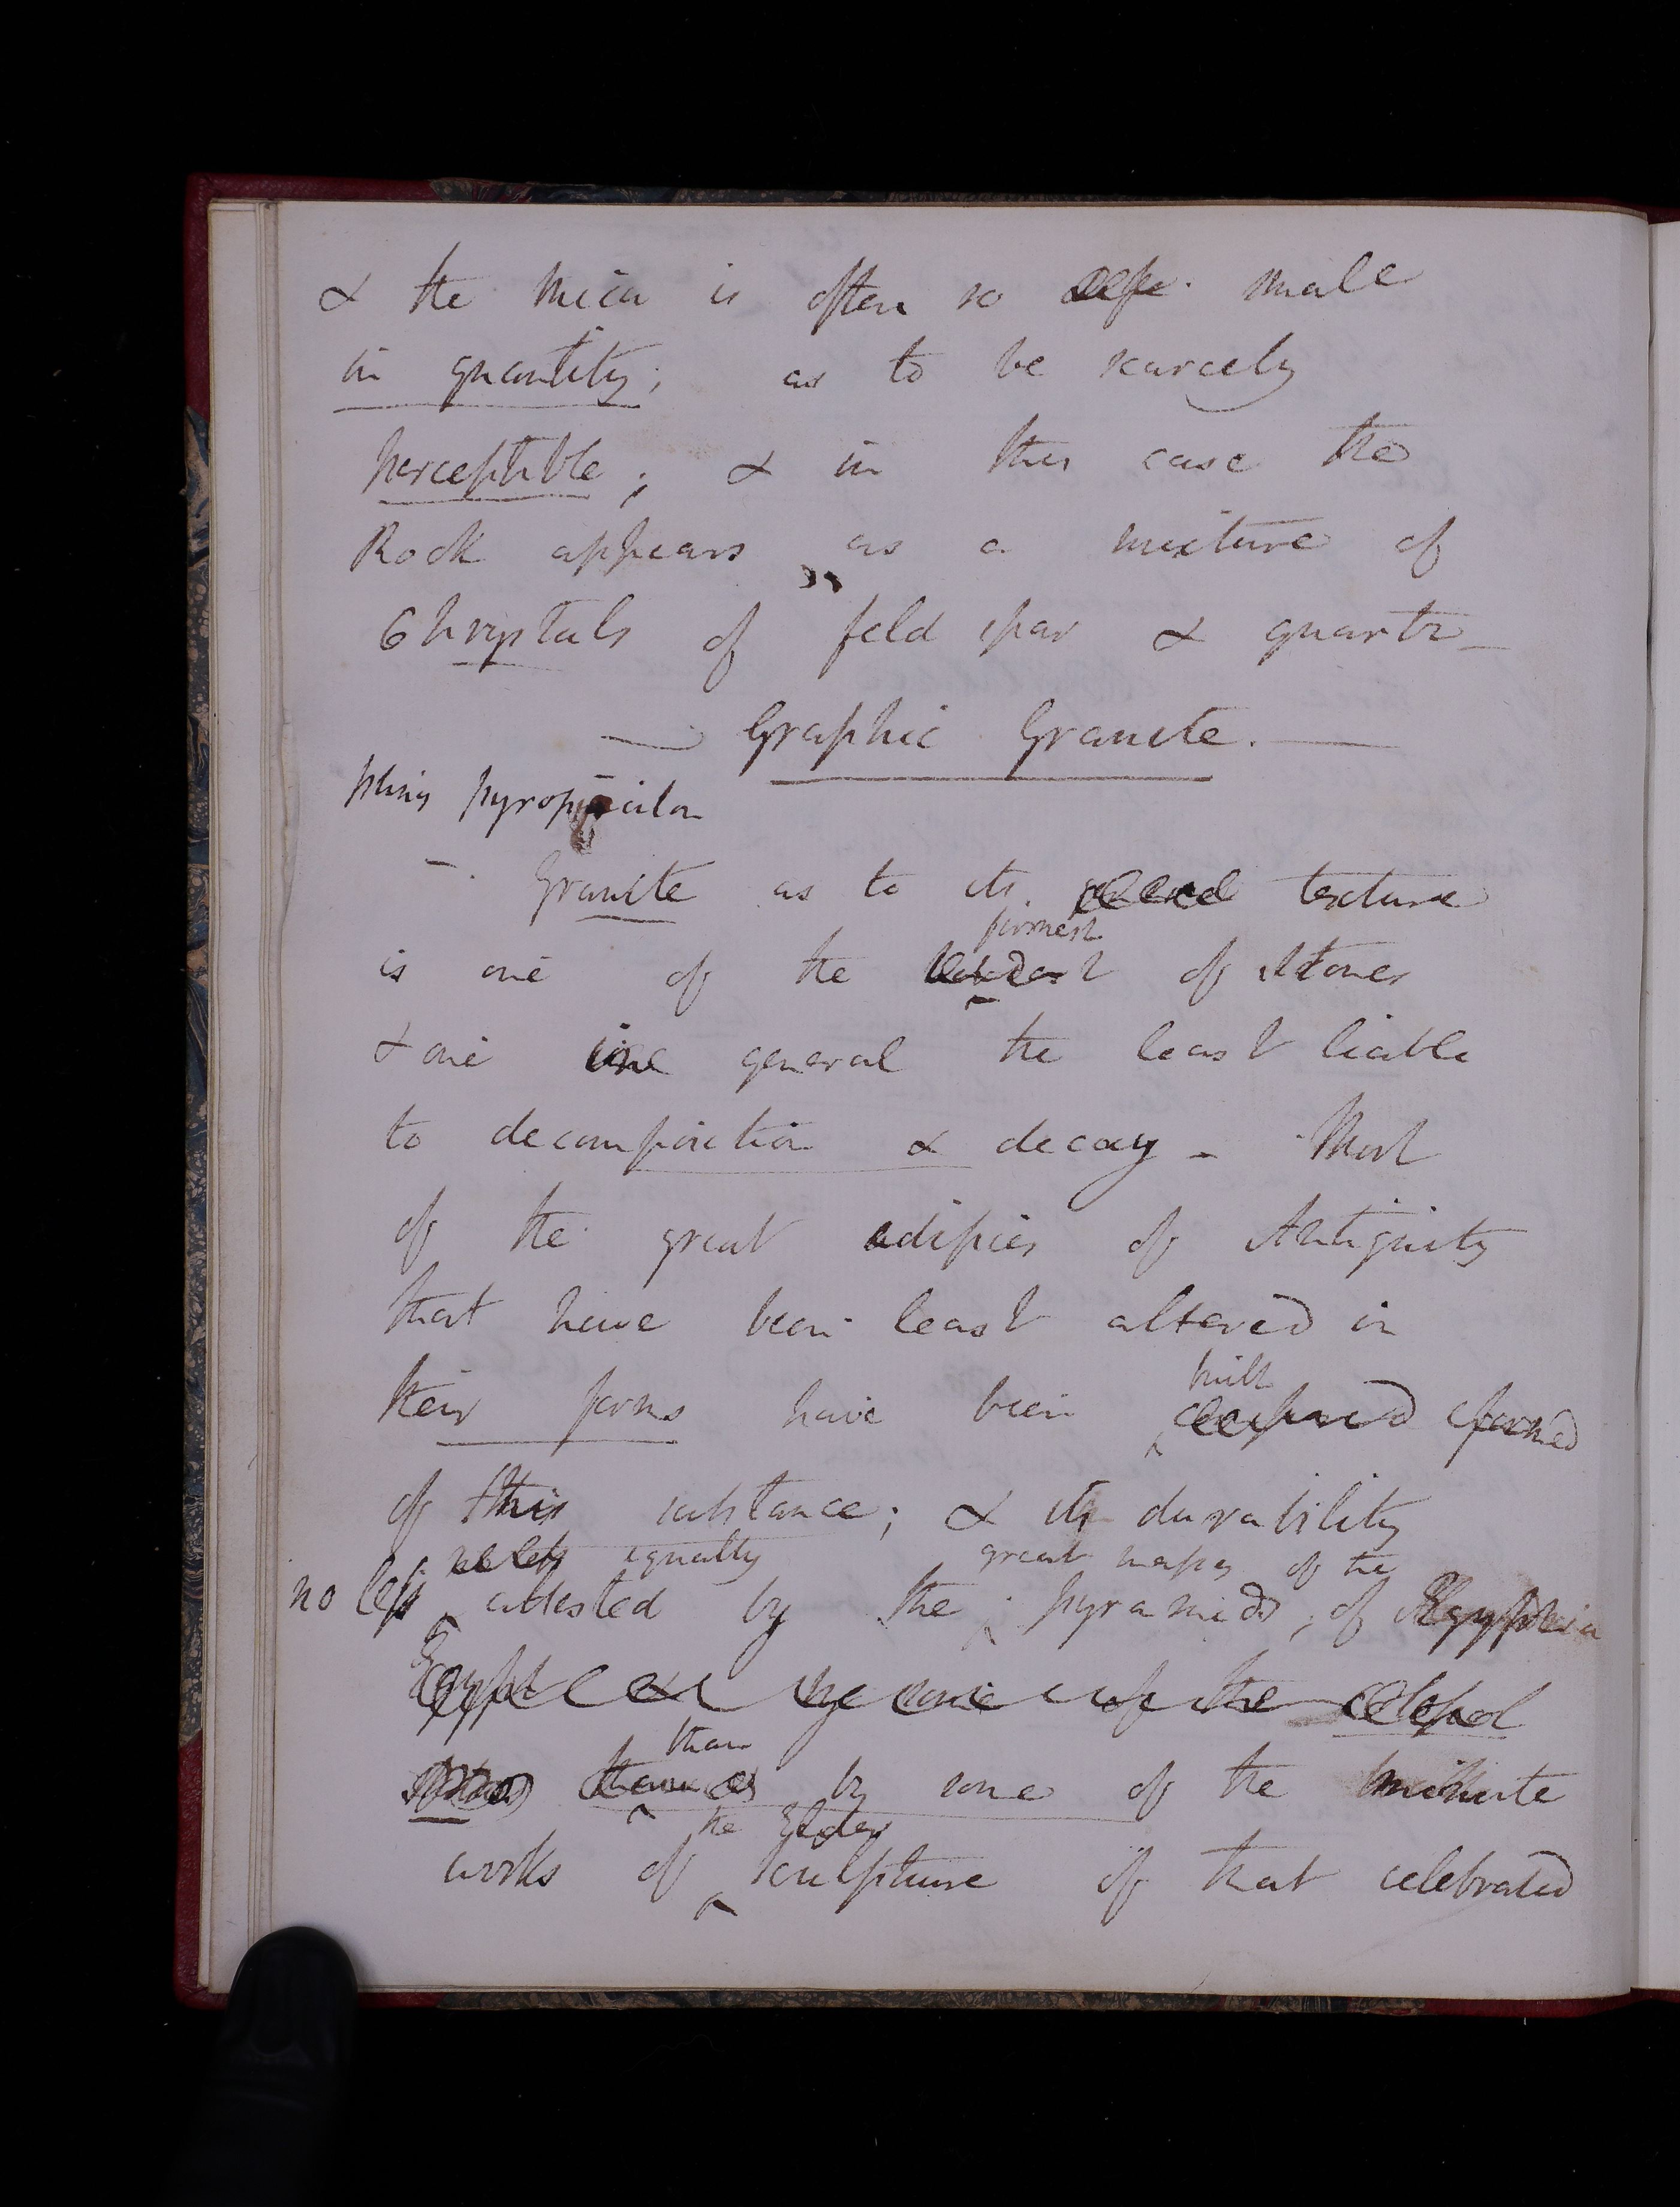 & the mica is often so small
in quantity; as to be scarcely
perceptible; & in this case the
Rock appears as a mixture of
Chrystals of feld spar & quartz_
— Graphic Granite. —
pliny pyropoecilon
– Granite as to its texture
firmest
is one of the hardest of stones
& one in general the least liable
to decomposition & decay – Most
of the great edifices of Antiquity
that have been least altered in
built
their forms have been formed
of this substance; & its durability
equally great mass of the
no less attested by the pyramids, of
Egypt & by some of the
than
by some of the minute
the Elder
works of sculpture of that celebrated